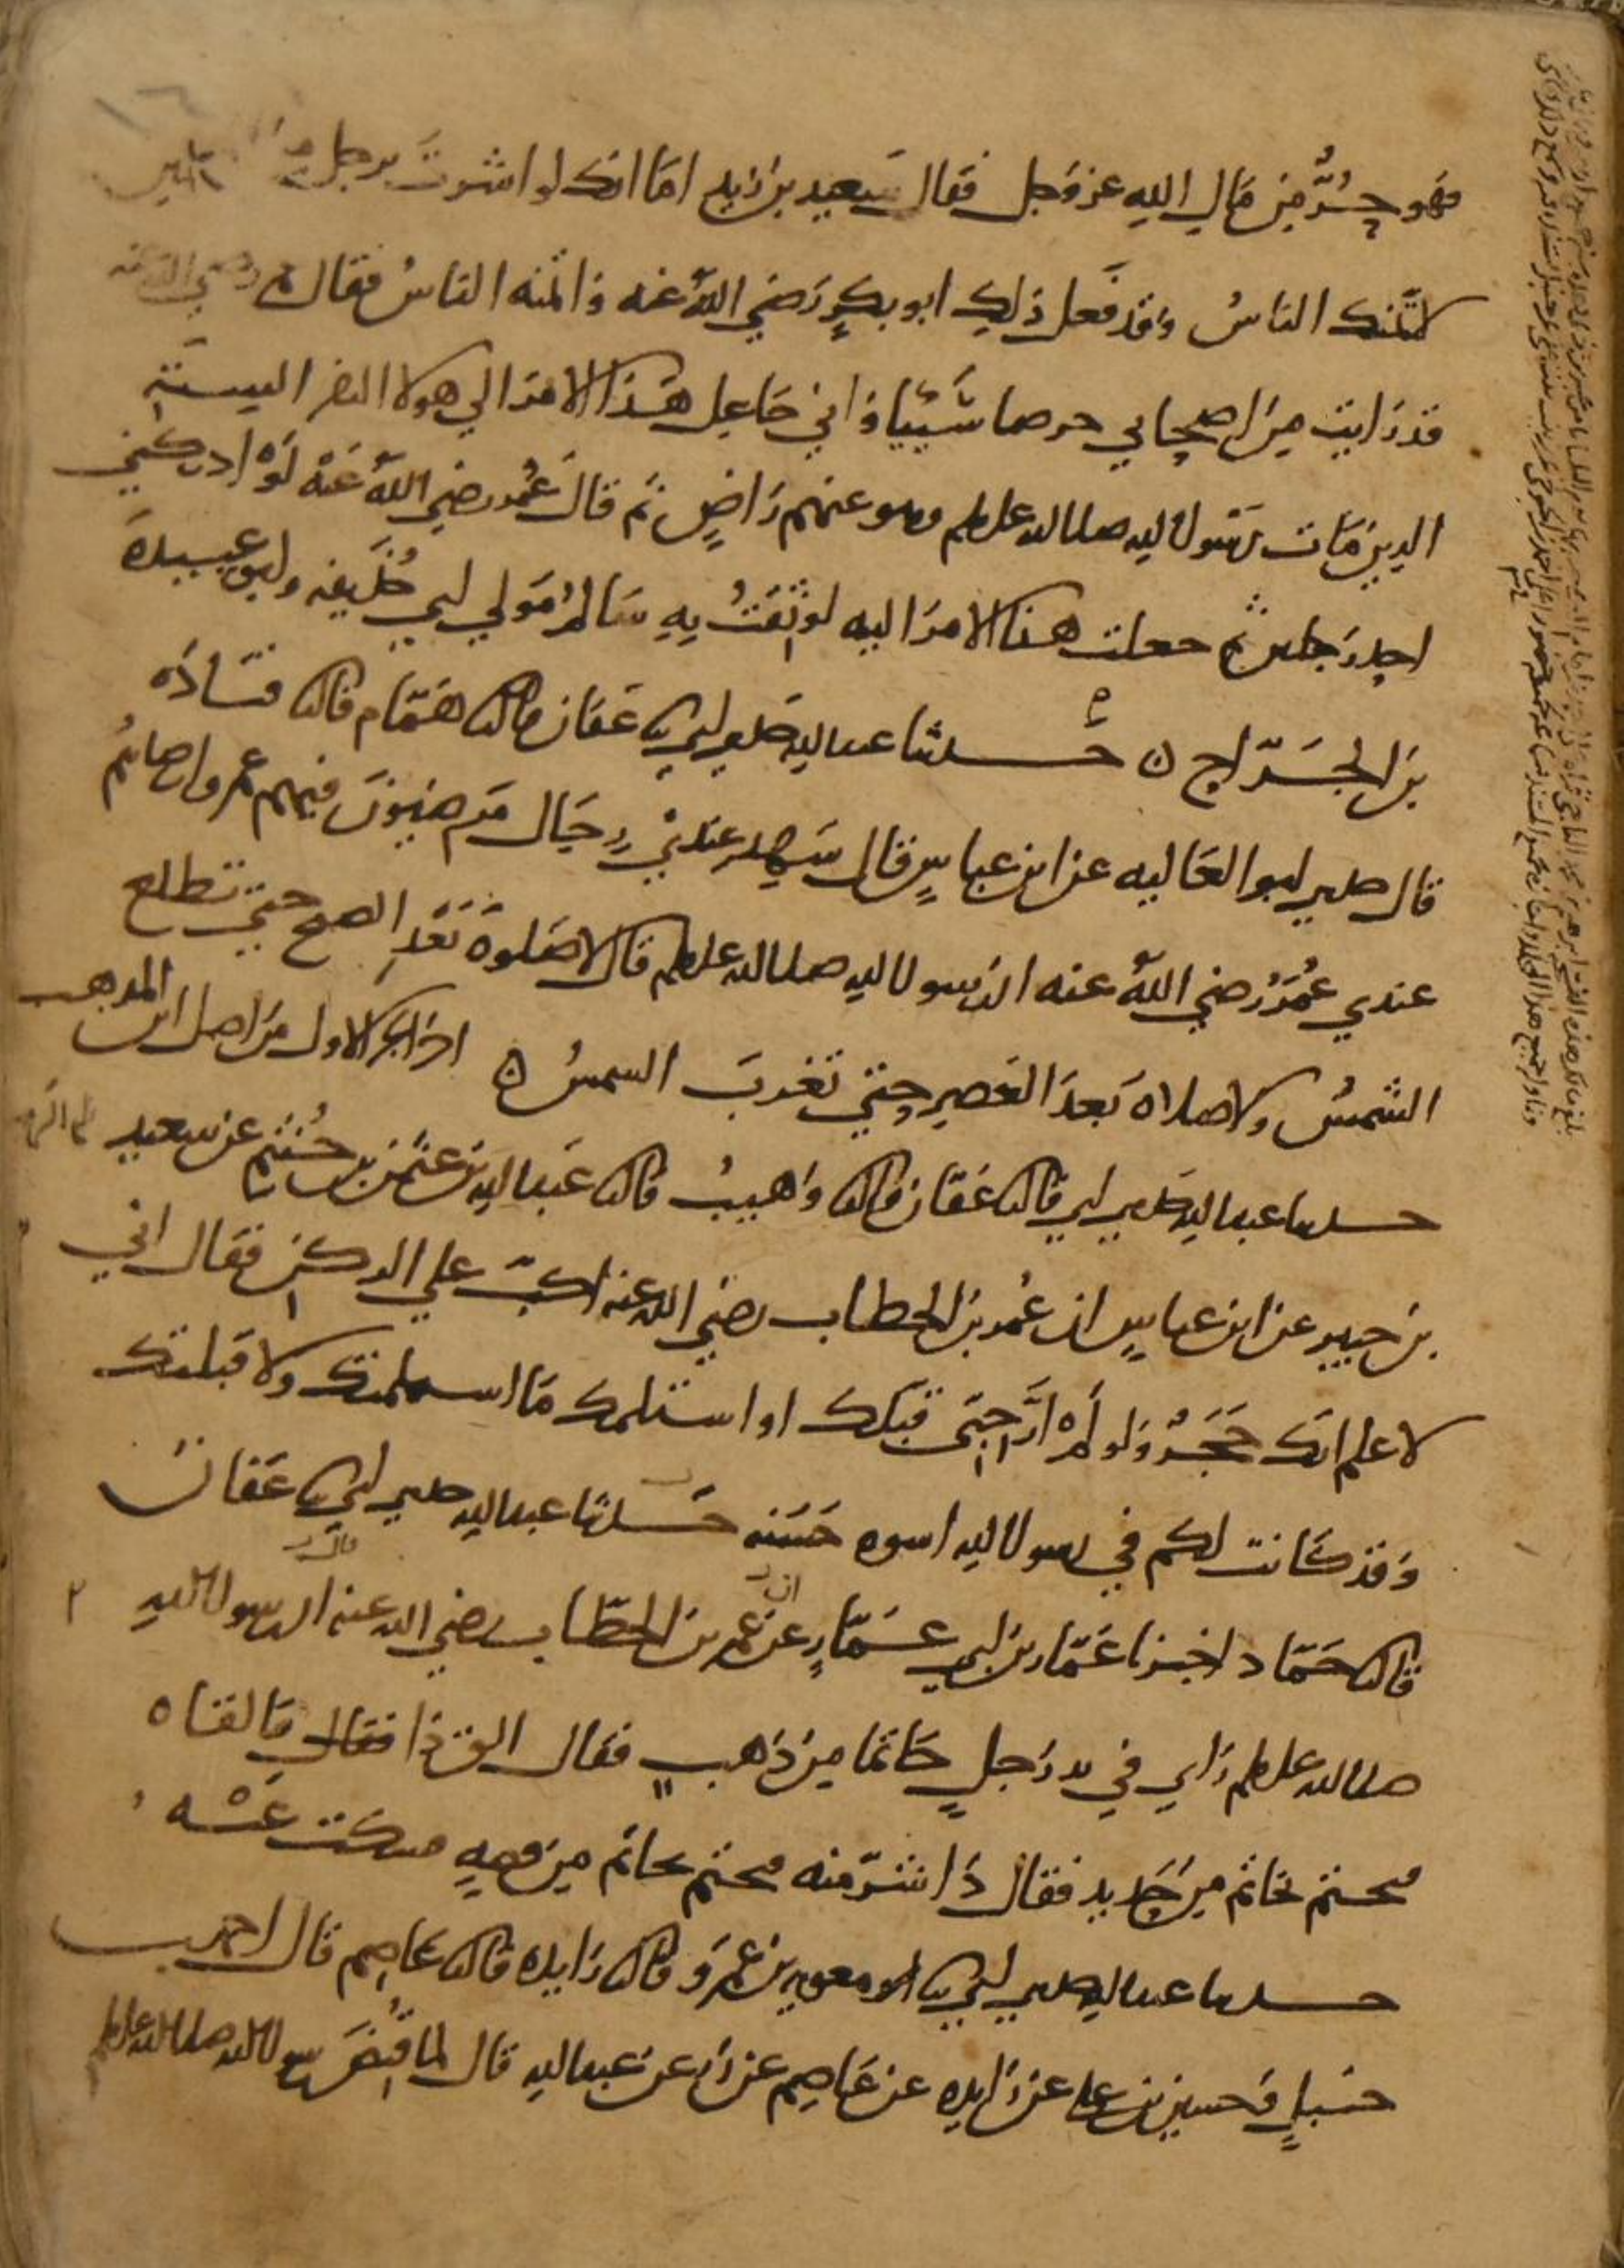 فهو حُرٌّ مِن مَالِ اللهِ عز وَجل فقال سَعيد بن زَيدٍ امَا انك لو اشرتَ برجل من المسلمين
لائتَمنك الناسُ وَقد فَعل ذلِك ابو بكرٍ رَضي اللهُ عنه وَائتمنه الناسُ فقال عمر رضي الله عنه
قد رَايت مِن اصحابي حرصا سَيّئًا وَاني جَاعِل هَذا الامَر الي هولا النفر الستة
الذين مَات رَسُول اللهِ صلى الله عليه وسلم وهو عنهم رَاضٍ ثم قالَ عُمَر رضي اللهُ عَنْه لَو ادركني
احد رَجلين ثم جعلت هذا الامرَ اليه لوثِقتُ بِهِ سَالمٌ مَولي ابي حُذَيفه وابو عبيدةَ
بنَ الجَرّاح ٥ حَدثنا عبد اللهِ حدثني ابي ثنا عَفان قال ثنا هَمّام قال ثنا قتَادَه
قال حدثني ابو العَاليه عن ابن عباسٍ قال شَهِد عندي رِجَال مَرضيونَ فيهم عمر وارضاهُم
عندي عُمَرُ رضي اللهُ عنه ان رَسول اللهِ صلى الله عليه وسلم قال لا صَلوة بَعْدَ الصبح حتي تطلع
الشمسُ ولا صلاة بَعدَ العَصرِ حتي تغربَ الشمسُ ٥ اخر الجزء الاول مَن اصل ابن المذهب
حدثنا عبد اللهِ حدثني ابي قال ثنا عَفان قال ثنا وَهيبُ قال ثنا عَبد اللهِ بن عثمن بن خُثيم عن سعيدِ
بن جبير عن ابن عباسٍ ان عُمر بنَ الخطاب رضي الله عنه اكبّ علي الركن فقال اني
لاعلم انك حَجَرٌ وَلو لم اَرَ حِبّي قبّلك او استلمك مَا استلمتك ولا قبلتك
وَقد كَانت لكم في رسول اللهِ اسوه حَسَنه حَدثنا عبد اللهِ حدثني ابي ثنا عَفان
قال ثنا حَمّاد اخبرنا عَمّار بن ابي عَمّارٍ عن عمر بن الخطّاب رضي الله عنه قال ان رسول اللهِ
صلى الله عليه وسلم رَاي في يد رَجلٍ خاتما مِن ذَهبٍ فقال القِ ذا فقال فَالقاه
فتختم بخاتم مِن حَديد فقال ذَا شرّ منه فتختم بخاتم مِن فِضهٍ فسكت عَنْه
حدثنا عبد اللهِ حدثني ابي ثنا معويه بن عَمرو قال ثنا زَايده قال ثنا عَاصِم قال احمد بن
حنبلٍ وَحسين بن علي عن زَايده عن عَاصِم عن زر عن عَبد اللهِ قال لما قُبضَ رسول الله صلى الله عليه وسلم